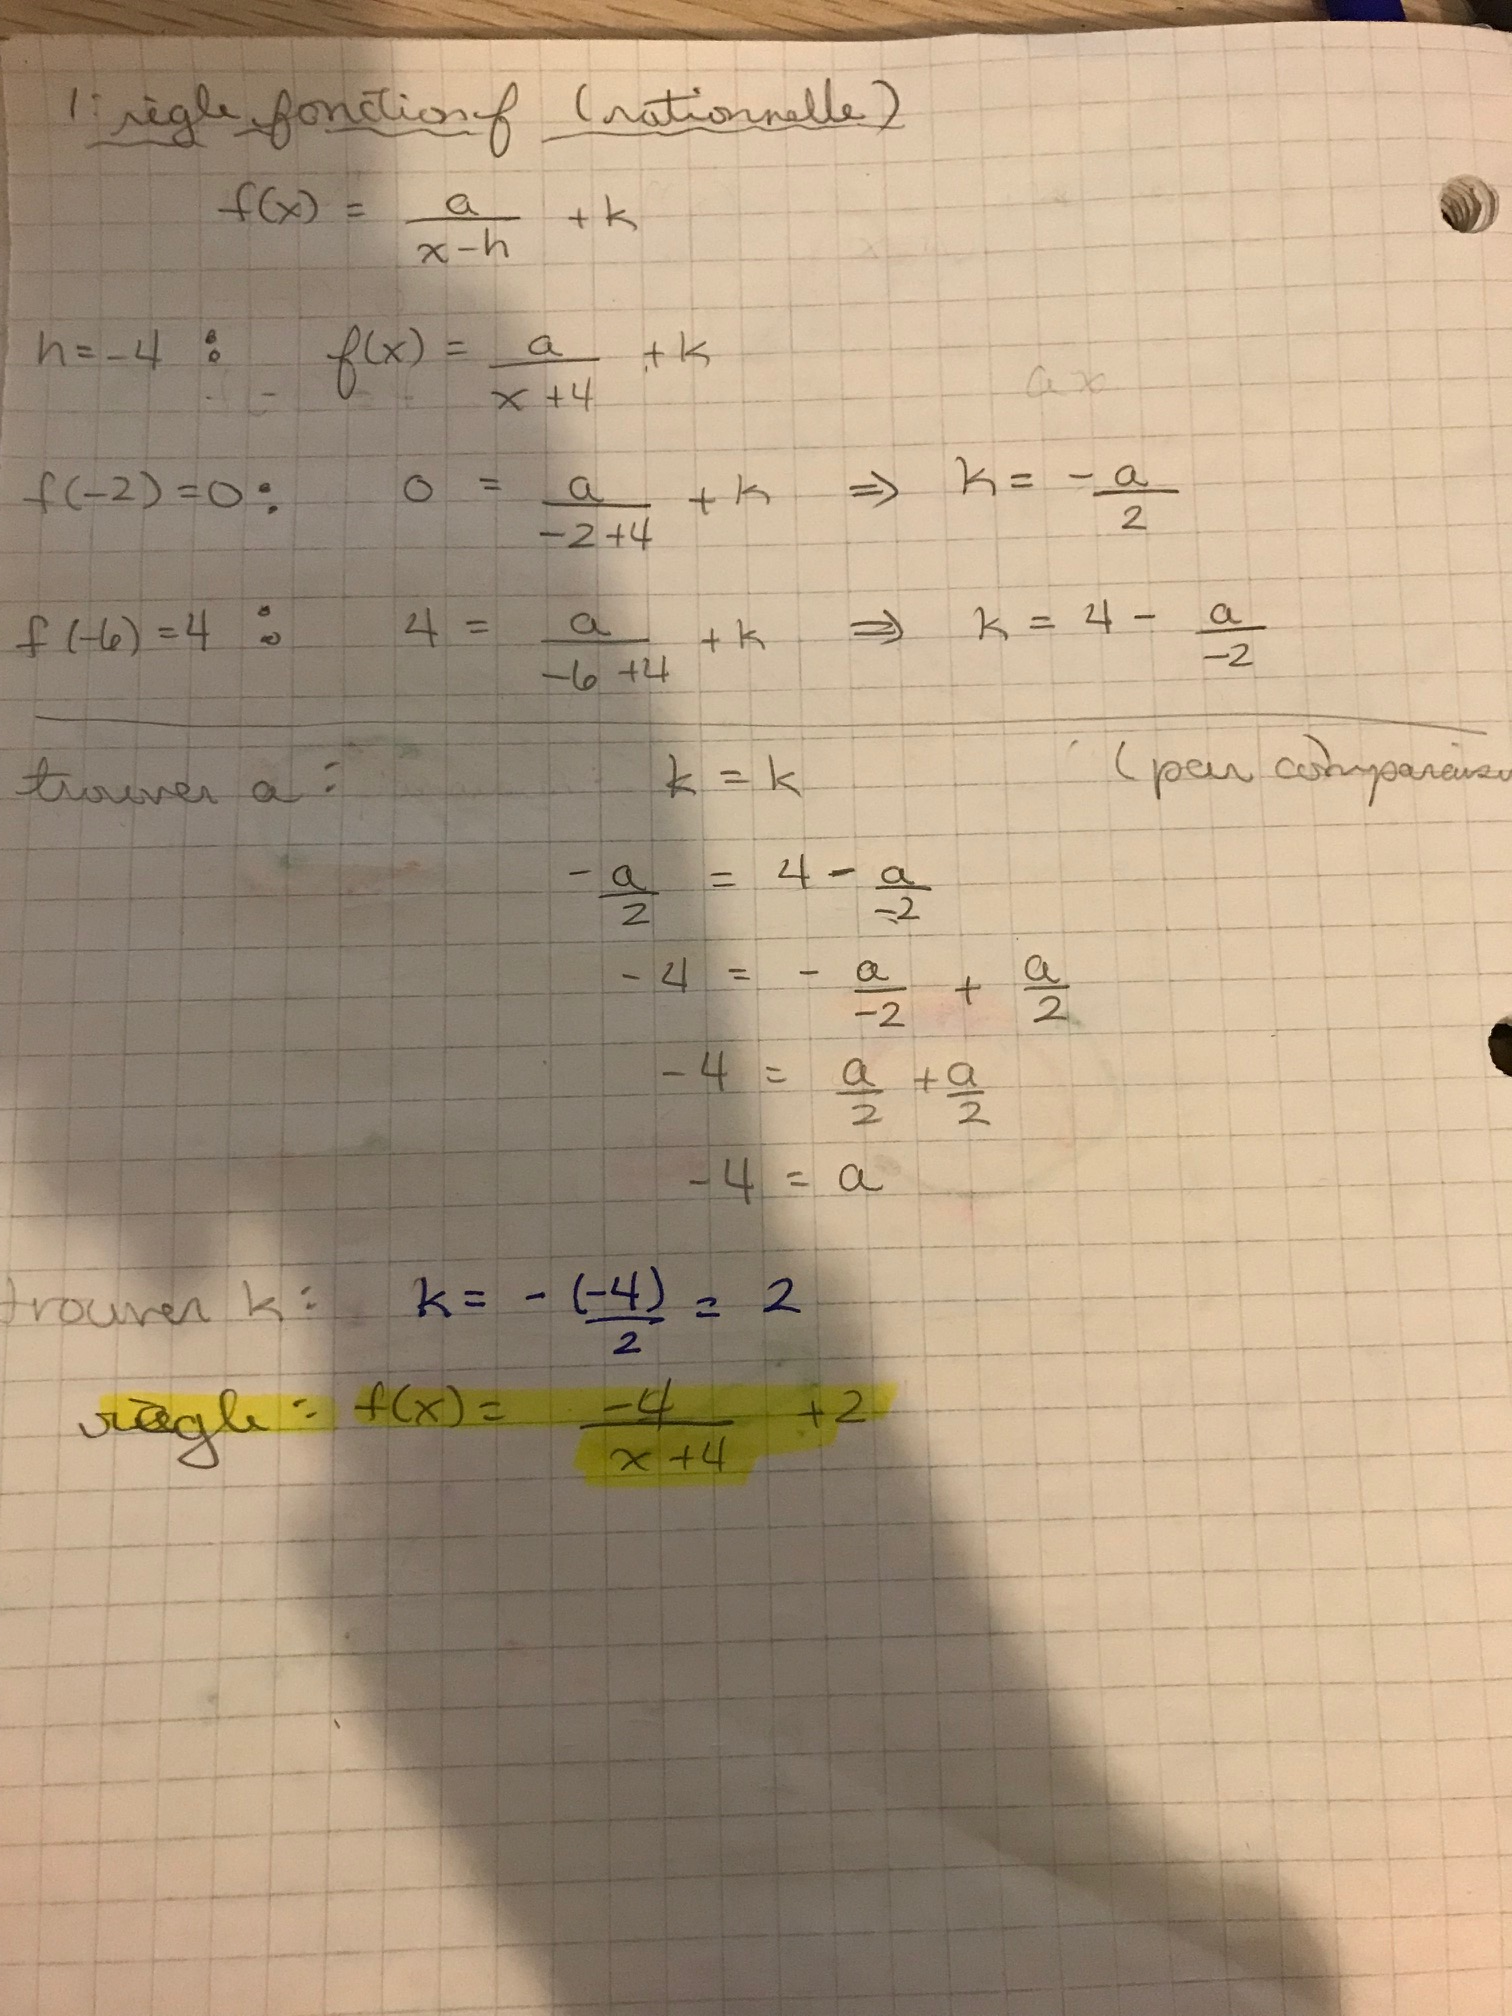 1: règle fonction f (rationnelle)
f(x) = a/(x-h) + k
h=-4 : f(x) = a/(x+4) + k
ax
f(-2)=0 : 0 = a/(-2+4) + k ⇒ k = -a/2
f(-6)=4 : 4 = a/(-6+4) + k ⇒ k = 4 - a/-2
trouver a : k = k (par comparaiso
-a/2 = 4 - a/-2
-4 = - a/-2 + a/2
-4 = a/2 + a/2
-4 = a
trouver k : k = - (-4)/2 = 2
règle : f(x) = -4/(x+4) +2